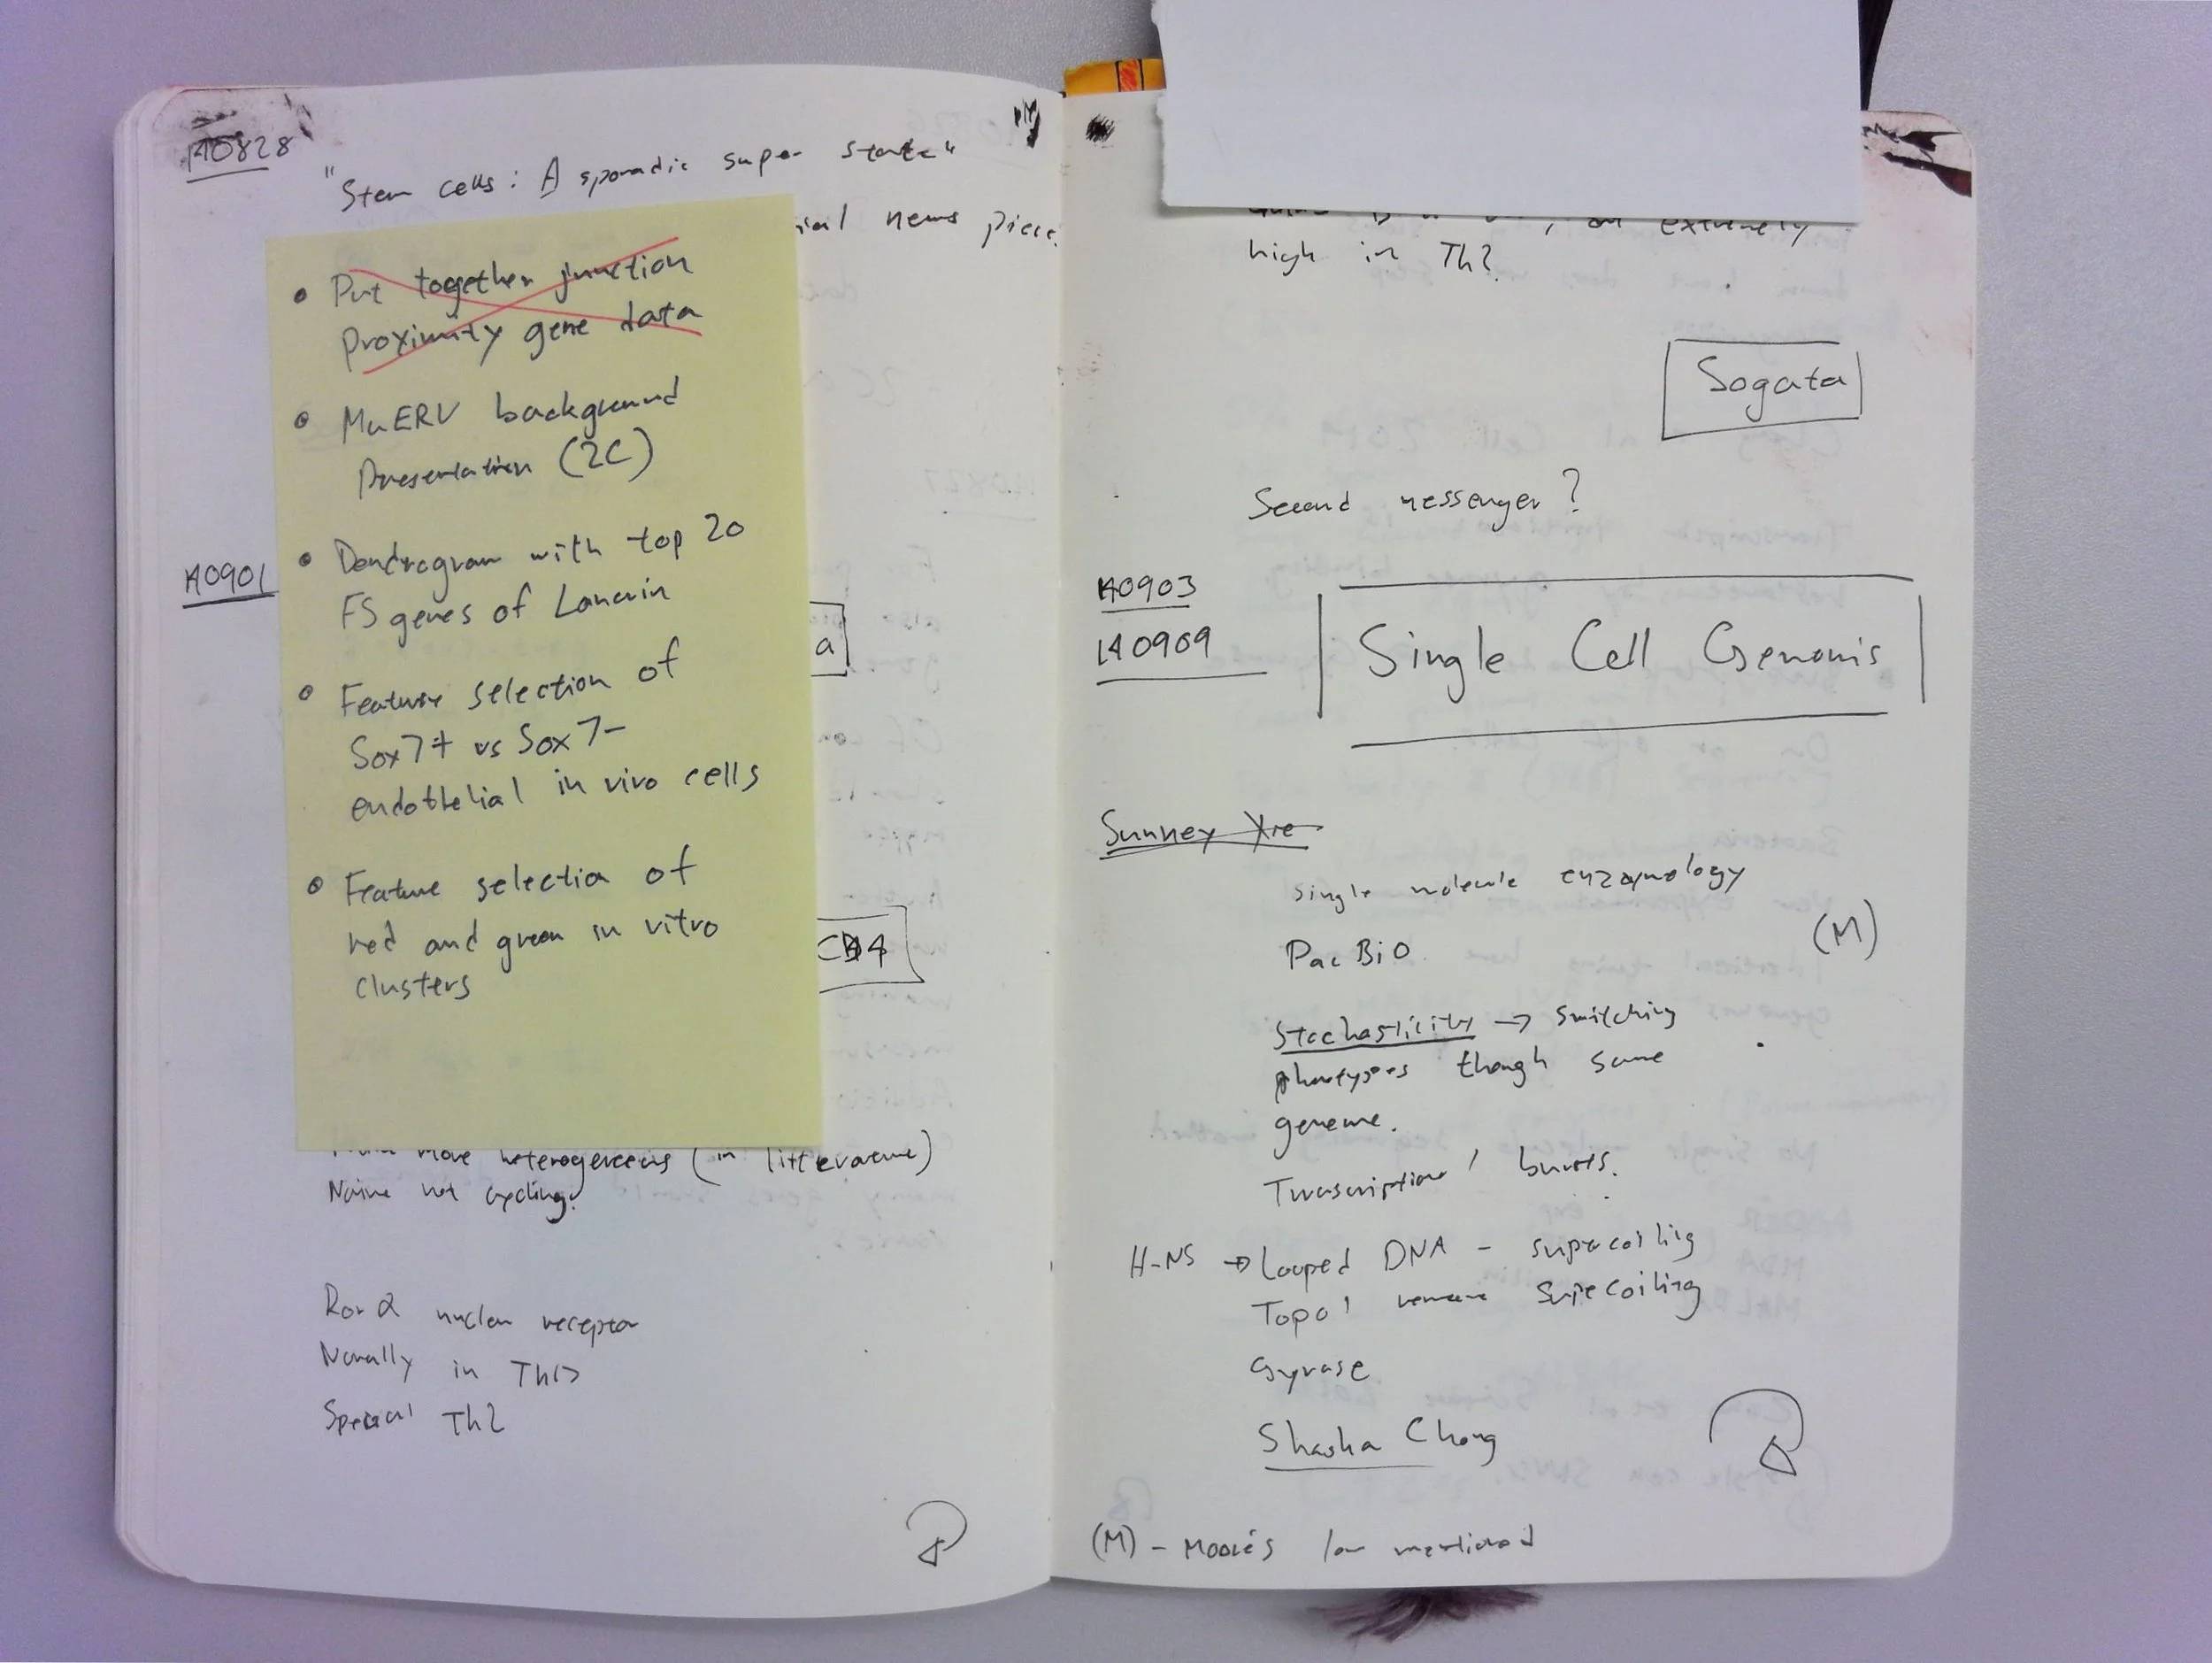 140828
"Stem cells: A sporadic super state"
news piece.
• Put together junction
Proximity gene data
• MuERV background
Presentation (2C)
• Dendrogram with top 20
FS genes of Lancrin
• Feature selection of
Sox7+ vs Sox7-
endothelial in vivo cells
• Feature selection of
red and green in vitro
clusters
140901
a
CD4
more heterogeneous (in litterature)
Naive not cycling.
Ror α nuclear receptor
Normally in Th17
Special Th2
extremely
high in Th2.
Sogata
Second messenger?
140903
140909
Single Cell Genomis
Sunney Xie
Single molecule enzymology
PacBio
(M)
Stochasticity → Switching
phenotypes though same
genome.
Transcription' bursts.
H-NS → Looped DNA - supercoiling
Topo I remove Supercoiling
Gyrase
Shasha Chong
(M) - Moore's law mentioned